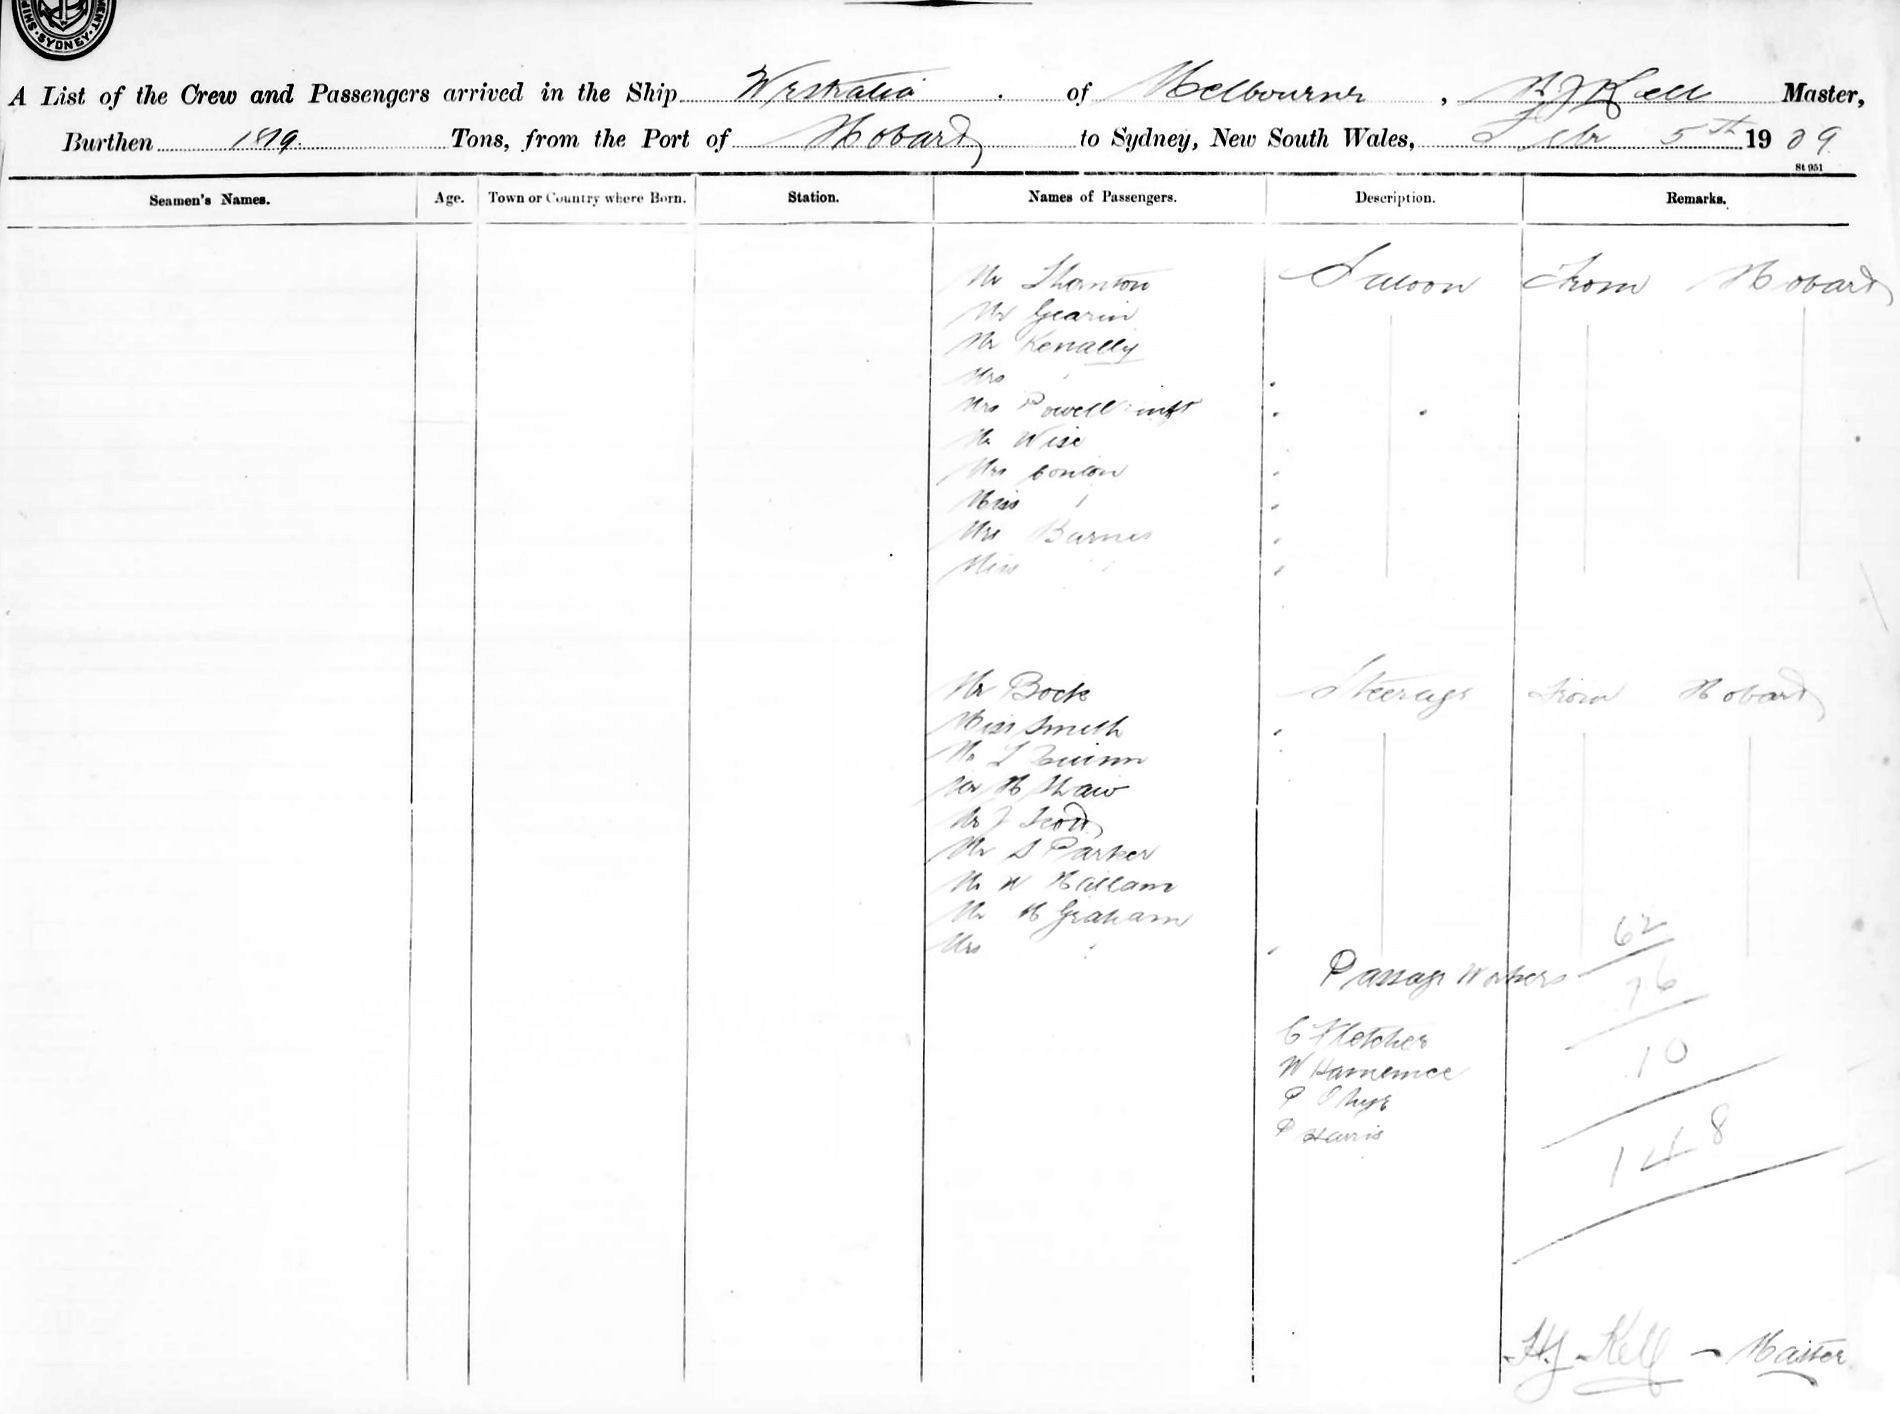 SYDNEY
A List of the Crew and Passengers arrived in the Ship Westralia of Melbourne, H J Kell Master,
Burthen 1819 Tons, from the Port of Hobart to Sydney, New South Wales, Feby 5th 1909
St 951
Seamen's Names. Age. Town or Country where Born. Station. Names of Passengers. Description. Remarks.
Mr Thornton Saloon From Hobart
Mr Gearin
Mr Kenally
Mrs "
Mrs Powell inft
Mr Wise
Mrs Conlon
Miss "
Mrs Barnes
Miss "
Mr Bock Steerage From Hobart
Miss Smith
Mr Quinn
Mr H Shaw
Mr J Scott
Mr S Parker
Mr W Hallam
Mr H Graham
Mrs "
62
Passage Workers
76
C Fletcher
10
W
P
P Harris
148
H.J. Kell - Master